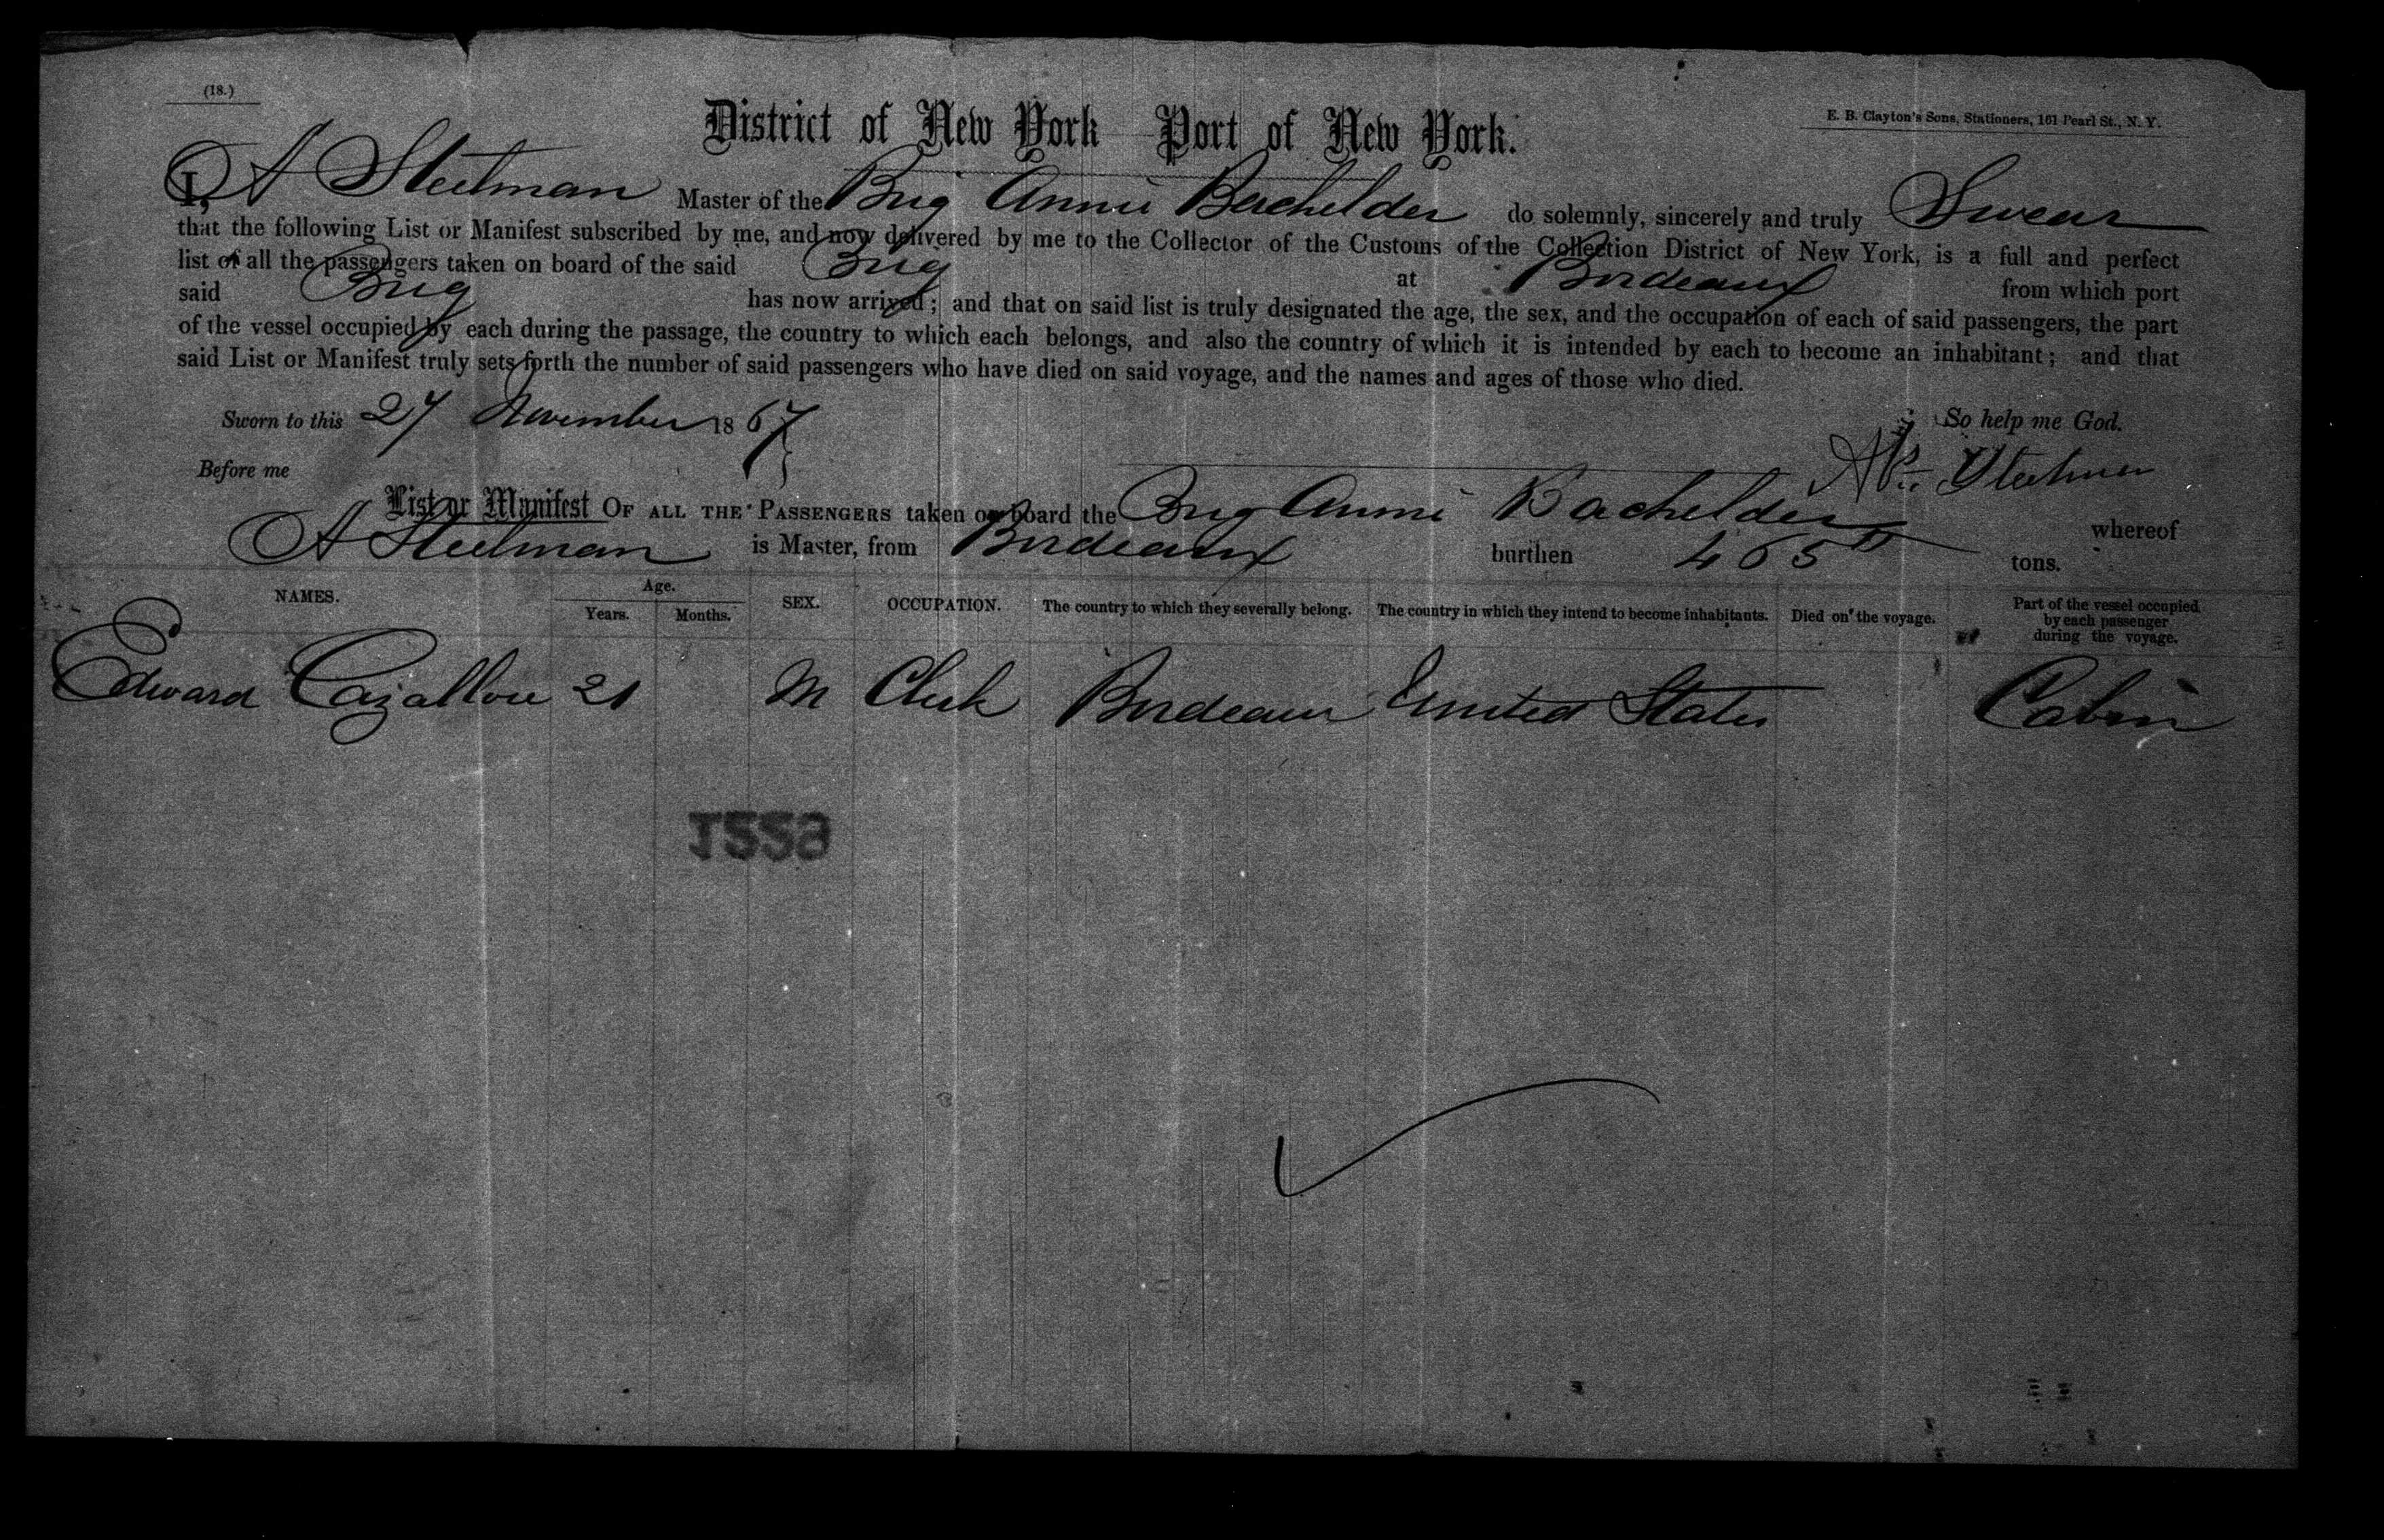 (18.)
E. B. Clayton's Sons, Stationers, 161 Pearl St., N. Y.
District of New York Port of New York.
I, A Steelman Master of the Brig Annie Bachelder do solemnly, sincerely and truly Swear
that the following List or Manifest subscribed by me, and now delivered by me to the Collector of the Customs of the Collection District of New York, is a full and perfect
list of all the passengers taken on board of the said Brig at Bordeaux from which port
said Brig has now arrived; and that on said list is truly designated the age, the sex, and the occupation of each of said passengers, the part
of the vessel occupied by each during the passage, the country to which each belongs, and also the country of which it is intended by each to become an inhabitant; and that
said List or Manifest truly sets forth the number of said passengers who have died on said voyage, and the names and ages of those who died.
Sworn to this 27 November 1867 So help me God.
Before me Steelman
List or Manifest OF ALL THE PASSENGERS taken on board the Brig Annie Bachelder whereof
A Steelman is Master, from Bordeaux burthen 465 tons.
NAMES. Age. Years. Months. SEX. OCCUPATION. The country to which they severally belong. The country in which they intend to become inhabitants. Died on the voyage. Part of the vessel occupied by each passenger during the voyage.
Edward 21 M Clerk Bordeaux United States Cabin